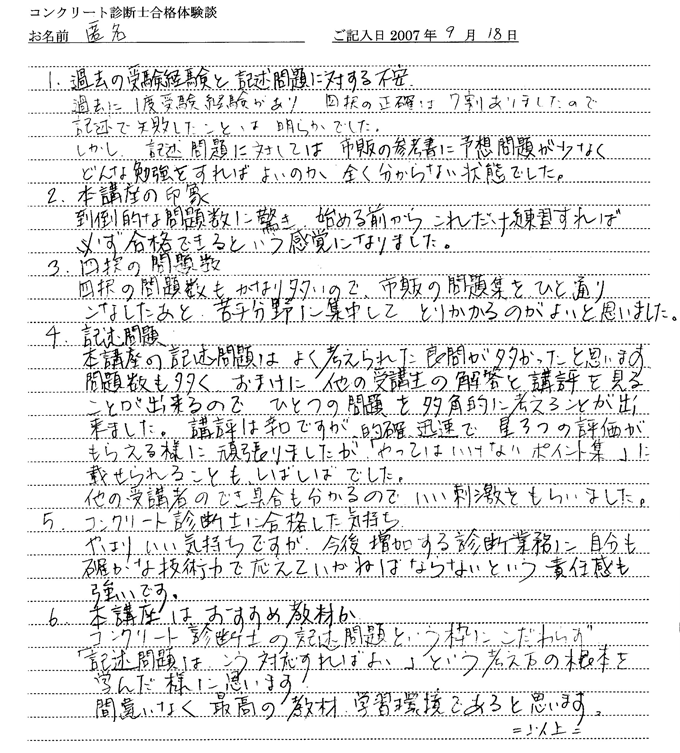 コンクリート診断士合格体験談
お名前 匿名 ご記入日 2007 年 9 月 18 日
1. 過去の受験経験と記述問題に対する不安
過去に1度受験経験があり 四択の正確は7割ありましたので
記述で失敗したことは明らかでした。
しかし、記述問題に対しては市販の参考書に予想問題が少なく
どんな勉強をすればよいのか、全く分からない状態でした。
2. 本講座の印象
到倒的な問題数に驚き、始める前からこれだけ練習すれば
必ず合格できるという感覚になりました。
3. 四択の問題数
四択の問題数もかなり多いので、市販の問題集をひと通り
こなしたあと 苦手分野に集中してとりかかるのがよいと思いました。
4. 記述問題
本講座の記述問題はよく考えられた良問が多かったと思います
問題数も多く おまけに他の受講生の解答と講評を見る
ことが出来るので ひとつの問題を多角的に考えることが出
来ました。講評は辛口ですが、的確、迅速で 星3つの評価が
もらえる様に頑張りましたが「やってはいけないポイント集」に
載せられることも、しばしばでした。
他の受講者のでき具合も分かるので いい刺激をもらいました。
5. コンクリート診断士に合格した気持ち
やはりいい気持ちですが、今後増加する診断業務に自分も
確かな技術力で応えていかねばならないという責任感も
強いです。
6. 本講座はおすすめ教材か
コンクリート診断士の記述問題という枠にこだわらず
「記述問題はこう対応すればよい」という考え方の根本を
学んだ様に思います
間違いなく最高の教材、学習環境であると思います。
=以上=